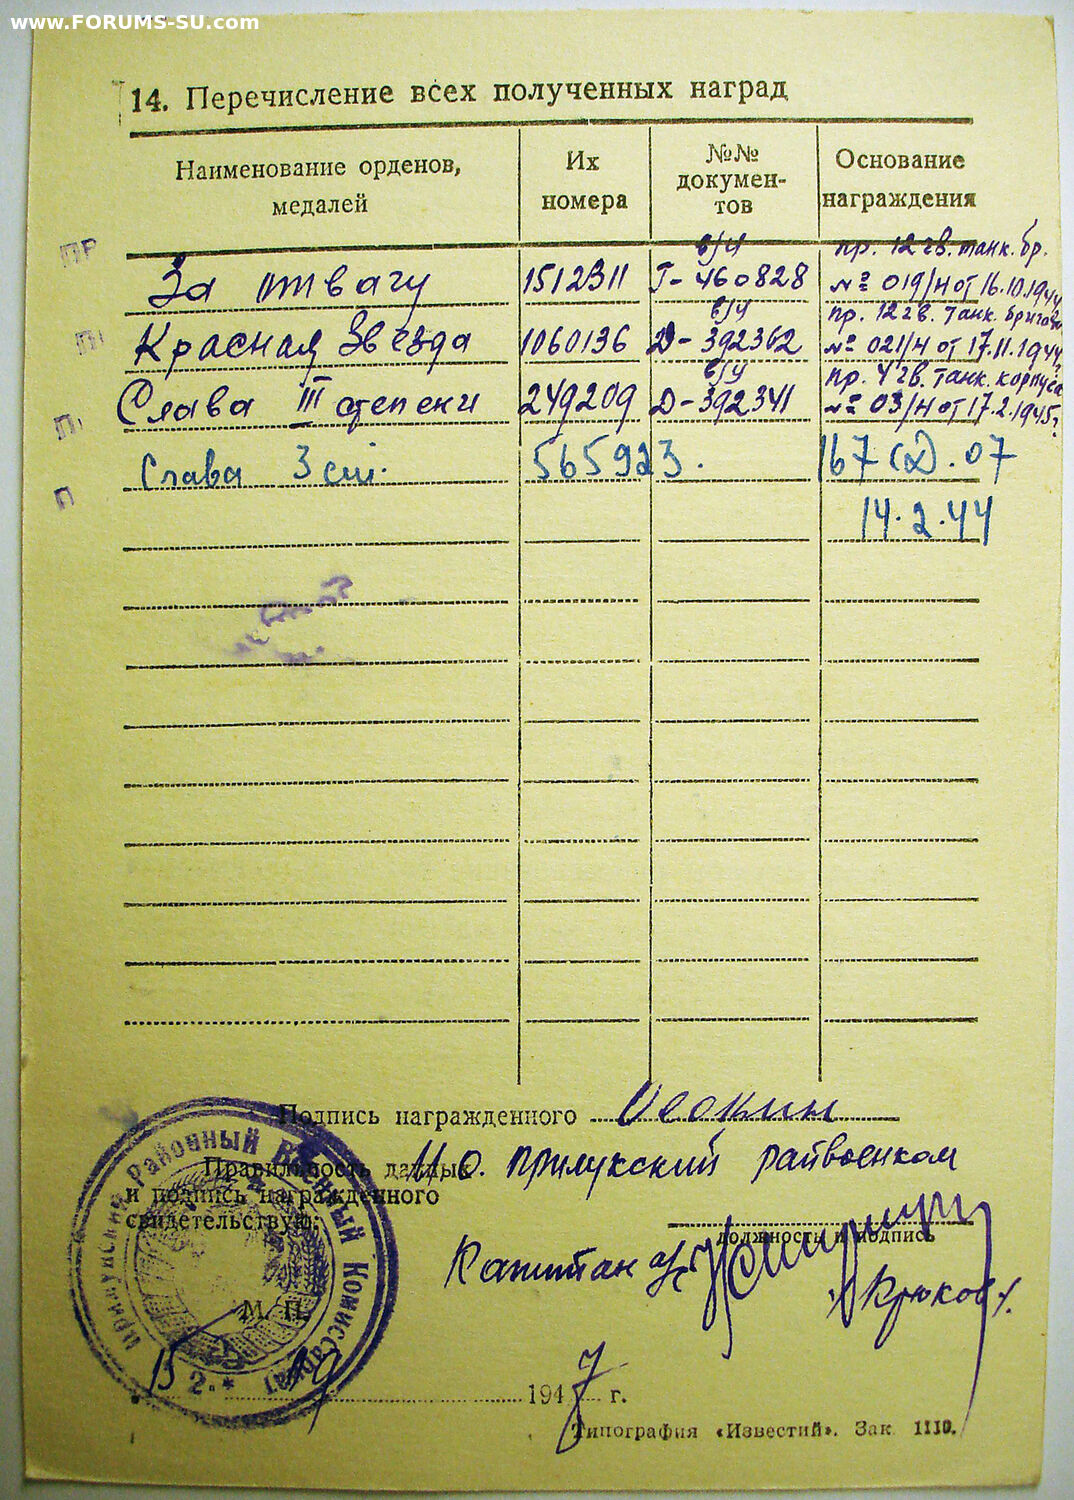 www.FORUMS-SU.com
14. Перечисление всех полученных наград
Наименование орденов, медалей
Их номера
№№ документов
Основание награждения
За отвагу 1512311 в/ч Г-460828 пр. 12 гв. танк. бр. № 019/н от 16.10.1944
Красная Звезда 1060136 в/ч Д-392362 пр. 12 гв. танк. бригады № 021/н от 17.11.1944
Слава III степени 249209 в/ч Д-392341 пр. 4 гв. танк. корпуса № 03/н от 17.2.1945г
Слава 3 ст. 565923. 167 СД. 07
14.2.44
Подпись награжденного
Правильность данных И.о. Прилукский райвоенком
и подпись награжденного
свидетельствую:
должность и подпись
Капитан
/Крюков/.
М. П.
Прилукский Районный Военный Комиссариат
2.*
15 1947 г.
Типография «Известий». Зак 1110.